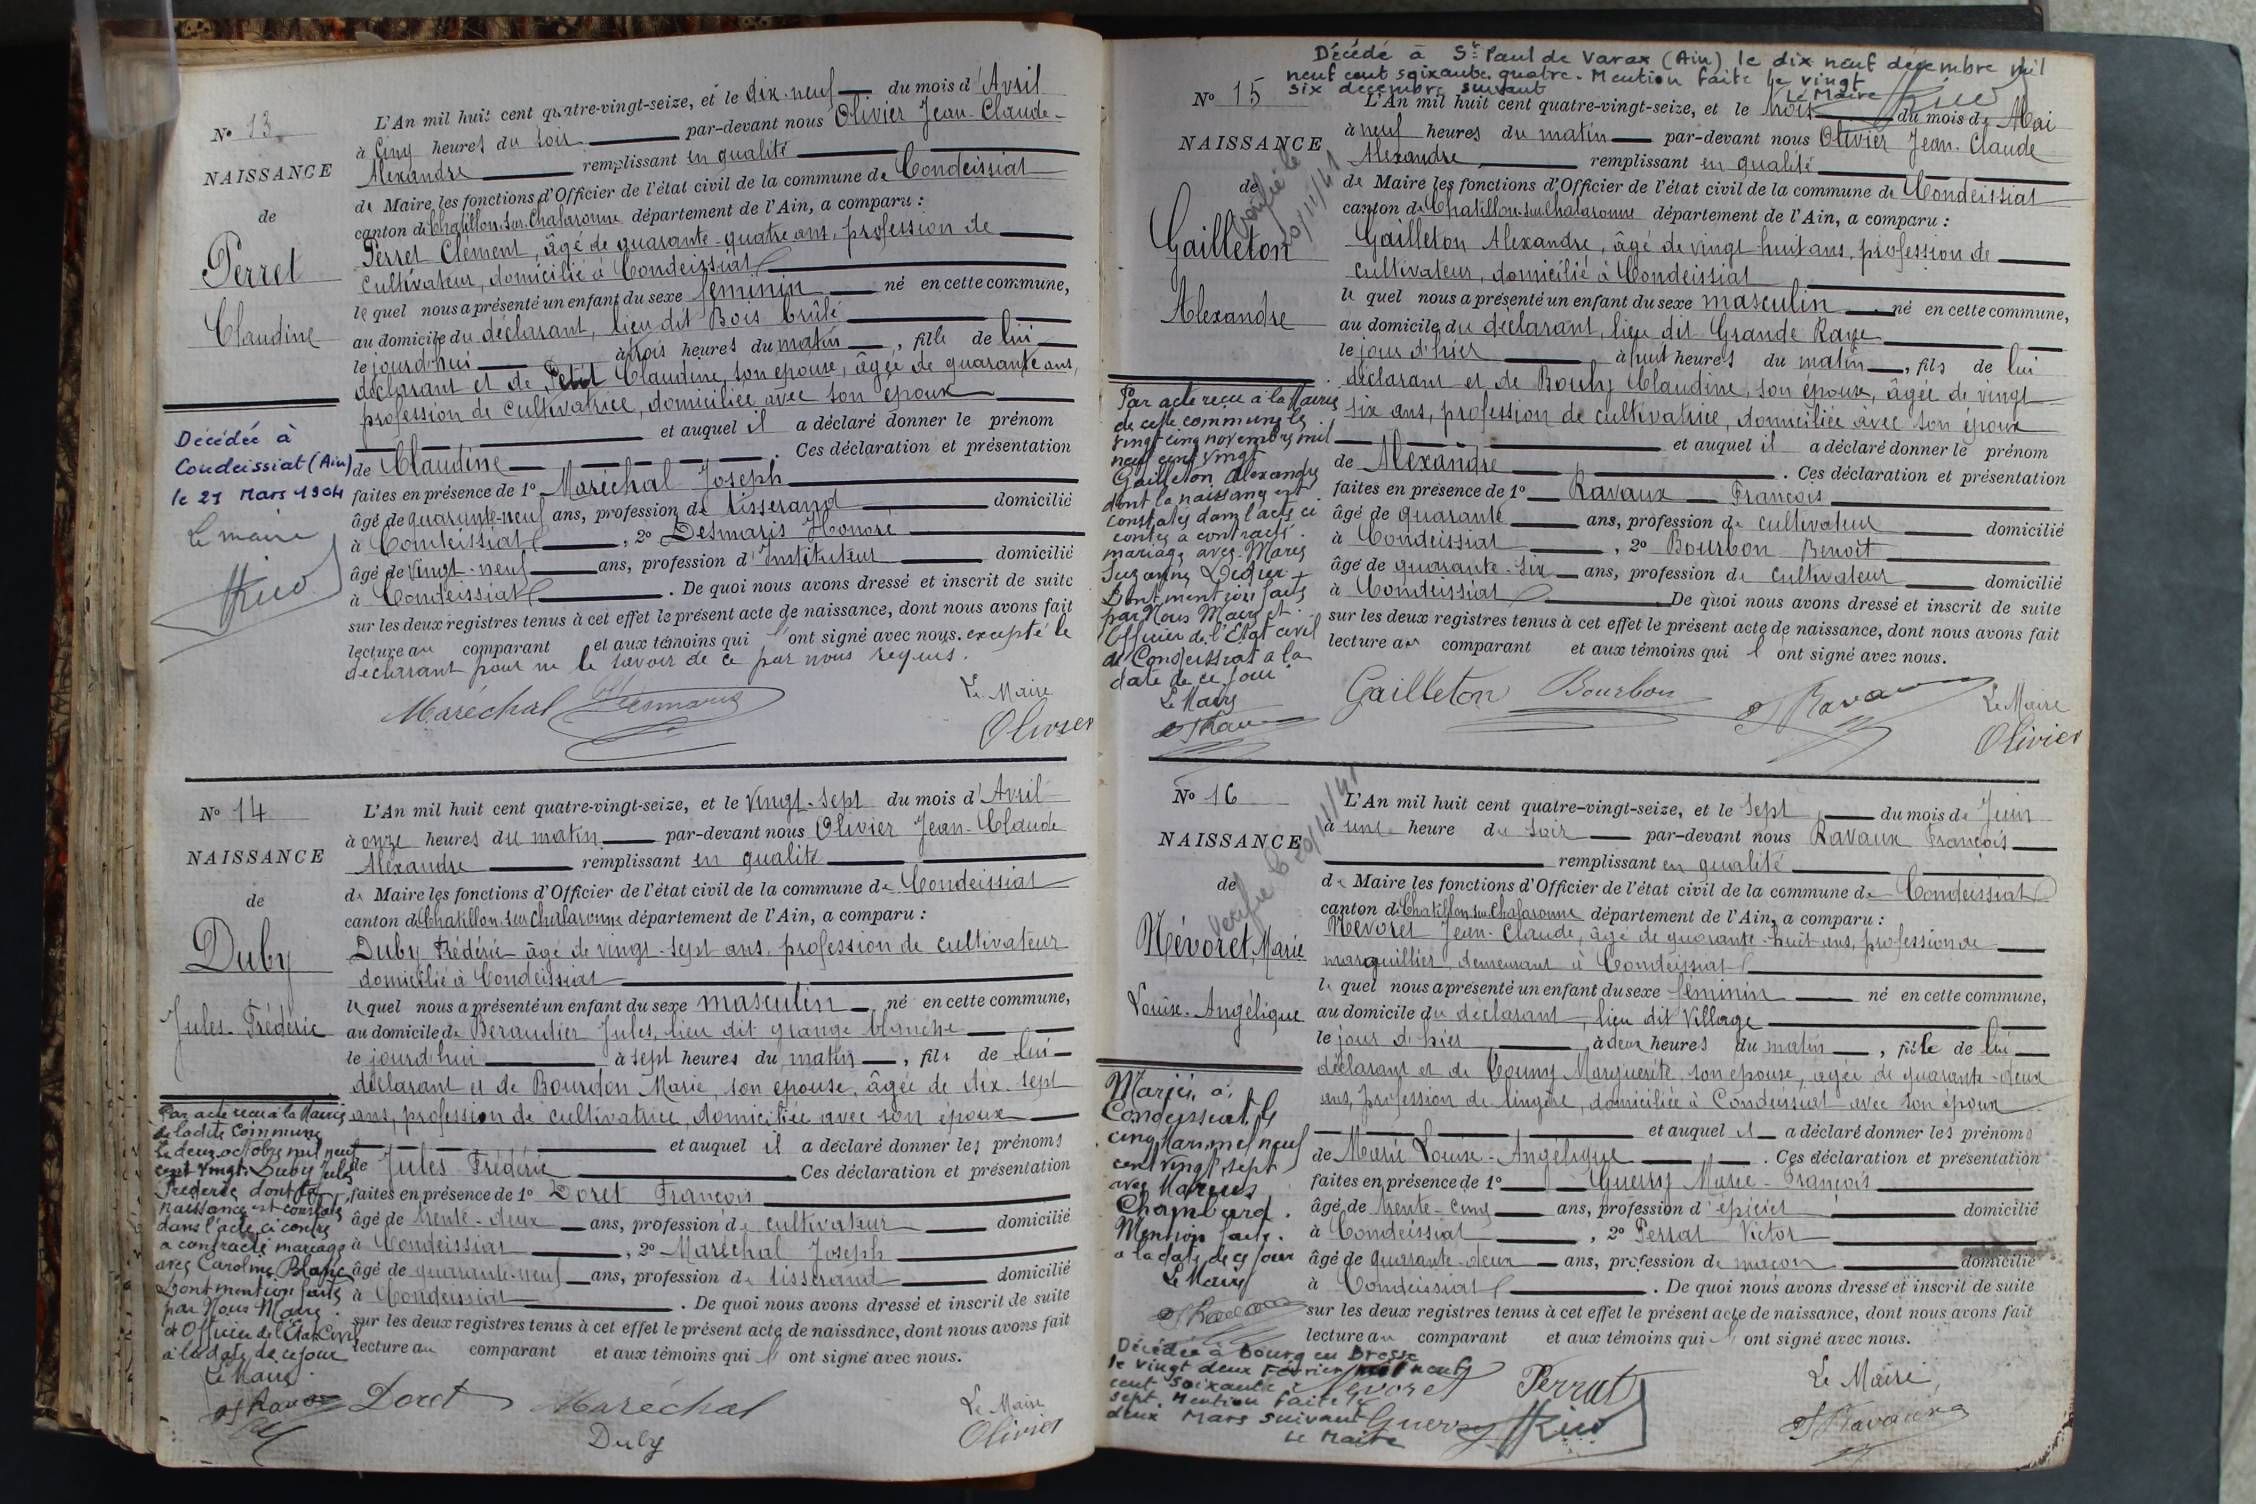 N° 13
NAISSANCE
de
Perret
Claudine
Décédée à
Condeissiat (Ain)
le 21 Mars 1904
Le maire
L'An mil huit cent quatre-vingt-seize, et le dix-neuf du mois d'Avril
à cinq heures du soir par-devant nous Olivier Jean-Claude-
Alexandre remplissant en qualité
de Maire les fonctions d'Officier de l'état civil de la commune de Condeissiat
canton de Chatillon-sur-Chalaronne département de l'Ain, a comparu :
Perret Clément, âgé de quarante-quatre ans, profession de
cultivateur, domicilié à Condeissiat
lequel nous a présenté un enfant du sexe féminin né en cette commune,
au domicile du déclarant, lieu dit Bois brûlé
le jourd'hui à trois heures du matin, fille de lui
déclarant et de Petit Claudine, son épouse, âgée de quarante ans,
profession de cultivatrice, domiciliée avec son époux
et auquel il a déclaré donner le prénom
de Claudine. Ces déclaration et présentation
faites en présence de 1° Maréchal Joseph
âgé de quarante-neuf ans, profession de tisserand domicilié
à Condeissiat, 2° Desmaris Honoré
âgé de vingt-neuf ans, profession d'Instituteur domicilié
à Condeissiat. De quoi nous avons dressé et inscrit de suite
sur les deux registres tenus à cet effet le présent acte de naissance, dont nous avons fait
lecture au comparant et aux témoins qui l'ont signé avec nous. excepté le
déclarant pour ne le savoir de ce par nous requis.
Maréchal Desmaris
Le Maire
Olivier
N° 14
NAISSANCE
de
Duby
Jules-Frédéric
Par acte reçu à la Mairie
de ladite Commune
Le deux octobre mil neuf
cent vingt. Duby Jules
Frédéric dont la
naissance est constatée
dans l'acte ci contre
a contracté mariage
avec Caroline Blanc
Dont mention faite
par Nous Maire
et Officier de l'Etat Civil
à la date de ce jour
Le Maire
L'An mil huit cent quatre-vingt-seize, et le vingt-sept du mois d'Avril
à onze heures du matin par-devant nous Olivier Jean-Claude
Alexandre remplissant en qualité
de Maire les fonctions d'Officier de l'état civil de la commune de Condeissiat
canton de Chatillon-sur-Chalaronne département de l'Ain, a comparu :
Duby Frédéric âgé de vingt-sept ans, profession de cultivateur
domicilié à Condeissiat
lequel nous a présenté un enfant du sexe masculin né en cette commune,
au domicile de Beraudier Jules, lieu dit grange blanche
le jourd'hui à sept heures du matin, fils de lui
déclarant et de Bourdon Marie, son épouse, âgée de dix-sept
ans, profession de cultivatrice, domiciliée avec son époux
et auquel il a déclaré donner les prénoms
de Jules Frédéric Ces déclaration et présentation
faites en présence de 1° Doret François
âgé de trente-deux ans, profession de cultivateur domicilié
à Condeissiat, 2° Maréchal Joseph
âgé de quarante-neuf ans, profession de tisserand domicilié
à Condeissiat. De quoi nous avons dressé et inscrit de suite
sur les deux registres tenus à cet effet le présent acte de naissance, dont nous avons fait
lecture au comparant et aux témoins qui l'ont signé avec nous.
Doret Maréchal
Duby
Le Maire
Olivier
Décédé à St Paul de Varax (Ain) le dix neuf décembre mil
neuf cent soixante quatre. Mention faite le vingt
six décembre suivant
Le Maire
N° 15
NAISSANCE
de
Vérifié le
20/11/41
Gailleton
Alexandre
Par acte reçu à la Mairie
de cette commune le
vingt-cinq novembre mil
neuf cent vingt
Gailleton Alexandre
dont la naissance est
constatée dans l'acte ci
contre a contracté
mariage avec Marie
Suzanne Didier
Dont mention faite
par Nous Maire et
Officier de l'Etat civil
de Condeissiat à la
date de ce jour
Le Maire
L'An mil huit cent quatre-vingt-seize, et le trois du mois de Mai
à neuf heures du matin par-devant nous Olivier Jean-Claude
Alexandre remplissant en qualité
de Maire les fonctions d'Officier de l'état civil de la commune de Condeissiat
canton de Chatillon-sur-Chalaronne département de l'Ain, a comparu :
Gailleton Alexandre, âgé de vingt-huit ans, profession de
cultivateur, domicilié à Condeissiat
lequel nous a présenté un enfant du sexe masculin né en cette commune,
au domicile du déclarant, lieu dit Grande Raye
le jour d'hier à huit heures du matin, fils de lui
déclarant et de Bouly Claudine, son épouse, âgée de vingt
six ans, profession de cultivatrice, domiciliée avec son époux
et auquel il a déclaré donner le prénom
de Alexandre. Ces déclaration et présentation
faites en présence de 1° Ravaux François
âgé de quarante ans, profession de cultivateur domicilié
à Condeissiat, 2° Bourbon Benoît
âgé de quarante-six ans, profession de cultivateur domicilié
à Condeissiat De quoi nous avons dressé et inscrit de suite
sur les deux registres tenus à cet effet le présent acte de naissance, dont nous avons fait
lecture au comparant et aux témoins qui l'ont signé avec nous.
Gailleton Bourbon Ravaux
Le Maire
Olivier
N° 16
NAISSANCE
de
Vérifié le 20/11/41
Névoret, Marie
Louise-Angélique
Mariée à
Condeissiat le
cinq Mars mil neuf
cent vingt sept
avec Marius
Chambard.
Mention faite
à la date de ce jour
Le Maire
Décédée à Bourg en Bresse
le vingt deux Février mil neuf
cent soixante
sept. Mention faite le
deux Mars suivant
Le Maire
L'An mil huit cent quatre-vingt-seize, et le sept du mois de Juin
à une heure du soir par-devant nous Ravaux François
remplissant en qualité
de Maire les fonctions d'Officier de l'état civil de la commune de Condeissiat
canton de Chatillon-sur-Chalaronne département de l'Ain, a comparu :
Névoret Jean-Claude, âgé de quarante-huit ans, profession de
marguillier, demeurant à Condeissiat
lequel nous a présenté un enfant du sexe féminin né en cette commune,
au domicile du déclarant, lieu dit Village
le jour d'hier à deux heures du matin, fille de lui
déclarant et de Marguerite, son épouse, âgée de quarante-deux
ans, profession de lingère, domiciliée à Condeissiat avec son époux
et auquel il a déclaré donner les prénoms
de Marie Louise-Angélique. Ces déclaration et présentation
faites en présence de 1° Guerry Marie-François
âgé de trente-cinq ans, profession d'épicier domicilié
à Condeissiat, 2° Perrat Victor
âgé de quarante-deux ans, profession de maçon domicilié
à Condeissiat. De quoi nous avons dressé et inscrit de suite
sur les deux registres tenus à cet effet le présent acte de naissance, dont nous avons fait
lecture au comparant et aux témoins qui l'ont signé avec nous.
Névoret Perrat
Guerry
Le Maire,
Ravaux